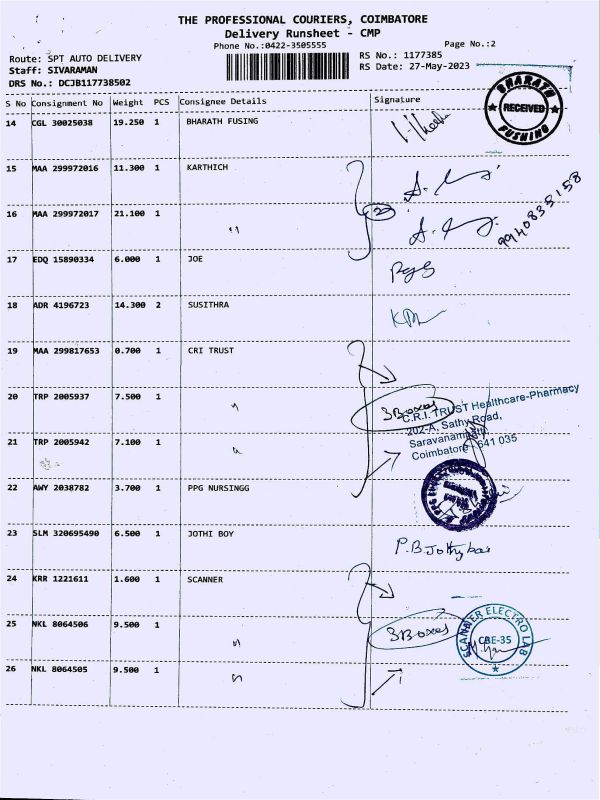 THE PROFESSIONAL COURIERS, COIMBATORE
Delivery Runsheet - CMP
Phone No.:0422-3505555 Page No.:2
Route: SPT AUTO DELIVERY RS No.: 1177385
Staff: SIVARAMAN RS Date: 27-May-2023
DRS No.: DCJB117738502
S No Consignment No Weight PCS Consignee Details Signature
14 CGL 30025038 19.250 1 BHARATH FUSING
BHARATH RECEIVED FUSHING
15 MAA 299972016 11.300 1 KARTHICH
16 MAA 299972017 21.100 1 " 2 9940835158
17 EDQ 15890334 6.000 1 JOE
18 ADR 4196723 14.300 2 SUSITHRA
19 MAA 299817653 0.700 1 CRI TRUST
20 TRP 2005937 7.500 1 " 3 Boxes
C.R.I. TRUST Healthcare-Pharmacy
202-A, Sathy Road,
21 TRP 2005942 7.100 1 "
Coimbatore - 641 035
22 AWY 2038782 3.700 1 PPG NURSINGG
23 SLM 320695490 6.500 1 JOTHI BOY P.B.Jothybai
24 KRR 1221611 1.600 1 SCANNER
25 NKL 8064506 9.500 1 " 3 Boxes
SCANNER ELECTRO LAB CBE-35
26 NKL 8064505 9.500 1 "